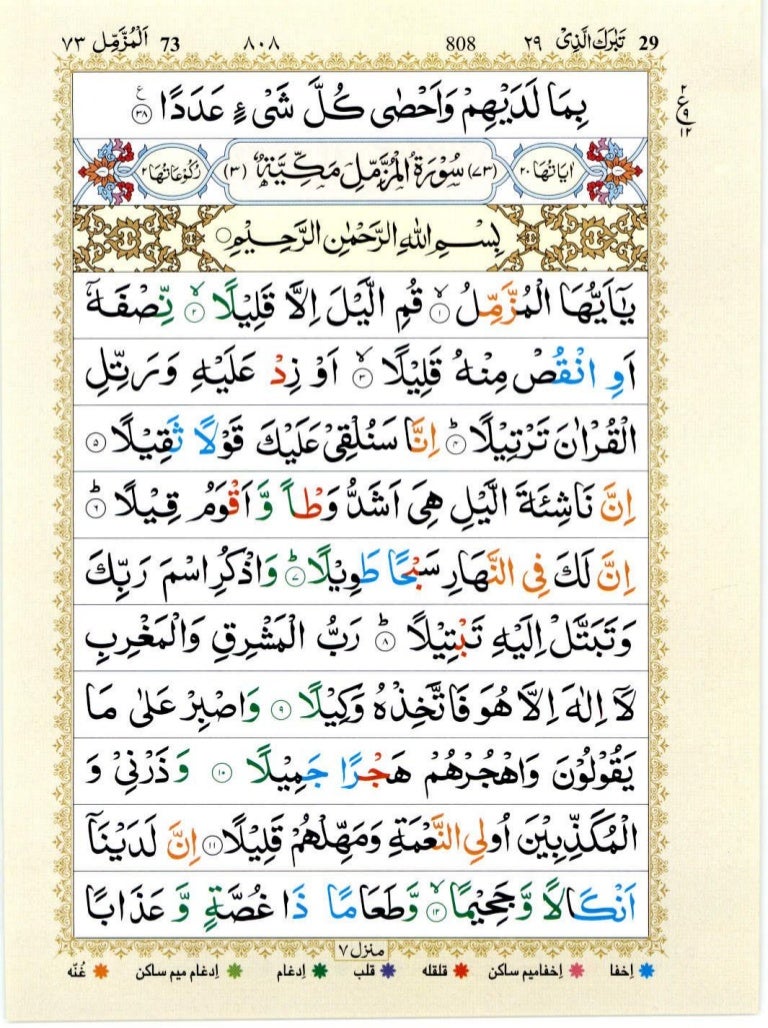 29 تَبٰرَكَ الَّذِیْ ٢٩ 808 ٨٠٨ 73 اَلْمُزَّمِّل ٧٣
بِمَا لَدَيْهِمْ وَاَحْصٰى كُلَّ شَیْءٍ عَدَدًا ٢٨ ع
٢ ع ٩ ١٢
اٰيَاتُهَا ٢٠ (٧٣) سُوْرَةُ الْمُزَّمِّلِ مَكِّيَّةٌ (٣) رُكُوْعَاتُهَا ٢
بِسْمِ اللهِ الرَّحْمٰنِ الرَّحِيْمِ
يٰۤاَيُّهَا الْمُزَّمِّلُ ١ قُمِ الَّيْلَ اِلَّا قَلِيْلًا ٢ نِّصْفَهٗۤ
اَوِ انْقُصْ مِنْهُ قَلِيْلًا ٣ اَوْ زِدْ عَلَيْهِ وَرَتِّلِ
الْقُرْاٰنَ تَرْتِيْلًا ٤ اِنَّا سَنُلْقِیْ عَلَيْكَ قَوْلًا ثَقِيْلًا ٥
اِنَّ نَاشِئَةَ الَّيْلِ هِیَ اَشَدُّ وَطْاً وَّاَقْوَمُ قِيْلًا ٦
اِنَّ لَكَ فِی النَّهَارِ سَبْحًا طَوِيْلًا ٧ وَاذْكُرِ اسْمَ رَبِّكَ
وَتَبَتَّلْ اِلَيْهِ تَبْتِيْلًا ٨ رَبُّ الْمَشْرِقِ وَالْمَغْرِبِ
لَاۤ اِلٰهَ اِلَّا هُوَ فَاتَّخِذْهُ وَكِيْلًا ٩ وَاصْبِرْ عَلٰى مَا
يَقُوْلُوْنَ وَاهْجُرْهُمْ هَجْرًا جَمِيْلًا ١٠ وَذَرْنِیْ وَ
الْمُكَذِّبِيْنَ اُولِی النَّعْمَةِ وَمَهِّلْهُمْ قَلِيْلًا ١١ اِنَّ لَدَيْنَاۤ
اَنْكَالًا وَّجَحِيْمًا ١٢ وَّطَعَامًا ذَا غُصَّةٍ وَّعَذَابًا
منزل ٧
اِخفا اِخفامیم ساکن قلقله قلب اِدغام اِدغام میم ساکن غُنّه